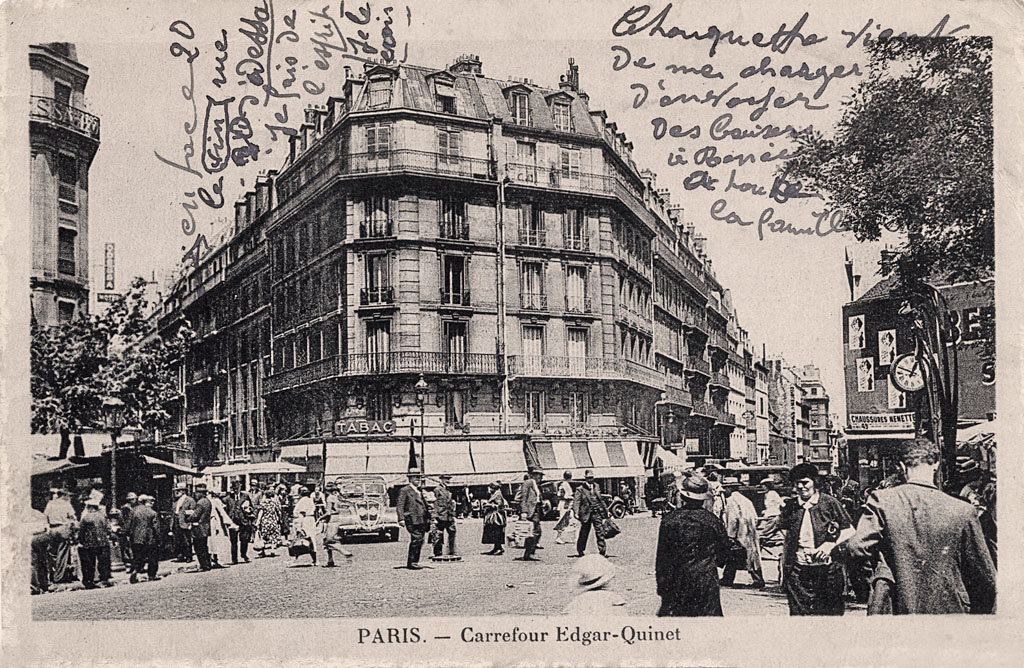 Chouquette vient
De me charger
D'envoyer
Des baisers
à Renée
et toute
la famille
ici face 20
la
me
Je fais de
l'esprit
je le
TABAC
CHAUSSURES NENETTE
BE
S
PARIS. — Carrefour Edgar-Quinet